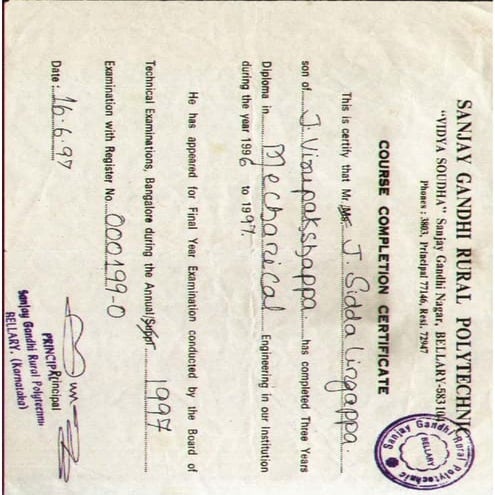 SANJAY GANDHI RURAL POLYTECHNIC
"VIDYA SOUDHA" Sanjay Gandhi Nagar, BELLARY-583 104
Phones : 3803, Principal 77146, Resi. 72947
COURSE COMPLETION CERTIFICATE
This is certify that Mr. Ms. J. Siddalingappa.
son of J. Virupakshappa has completed Three Years
Diploma in Mechanical Engineering in our Institution
during the year 1996 to 1997.
He has appeared for Final Year Examination conducted by the Board of
Technical Examinations, Bangalore during the Annual/Supt. 1997
Examination with Register No. 000199-0
Date : 16.6.97
PRINCIPAL
Principal
Sanjay Gandhi Rural Polytechnic
BELLARY. (Karnataka)
Sanjay Gandhi Rural Polytechnic
BELLARY